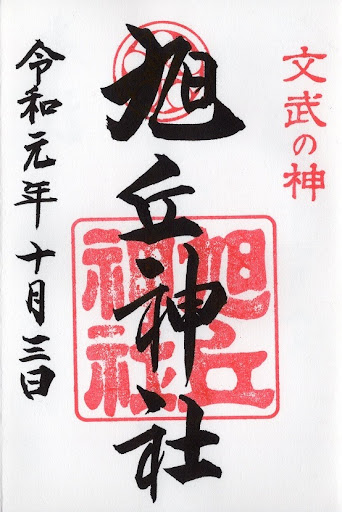 文武の神
旭丘神社
旭丘
神社
令和元年十月三日